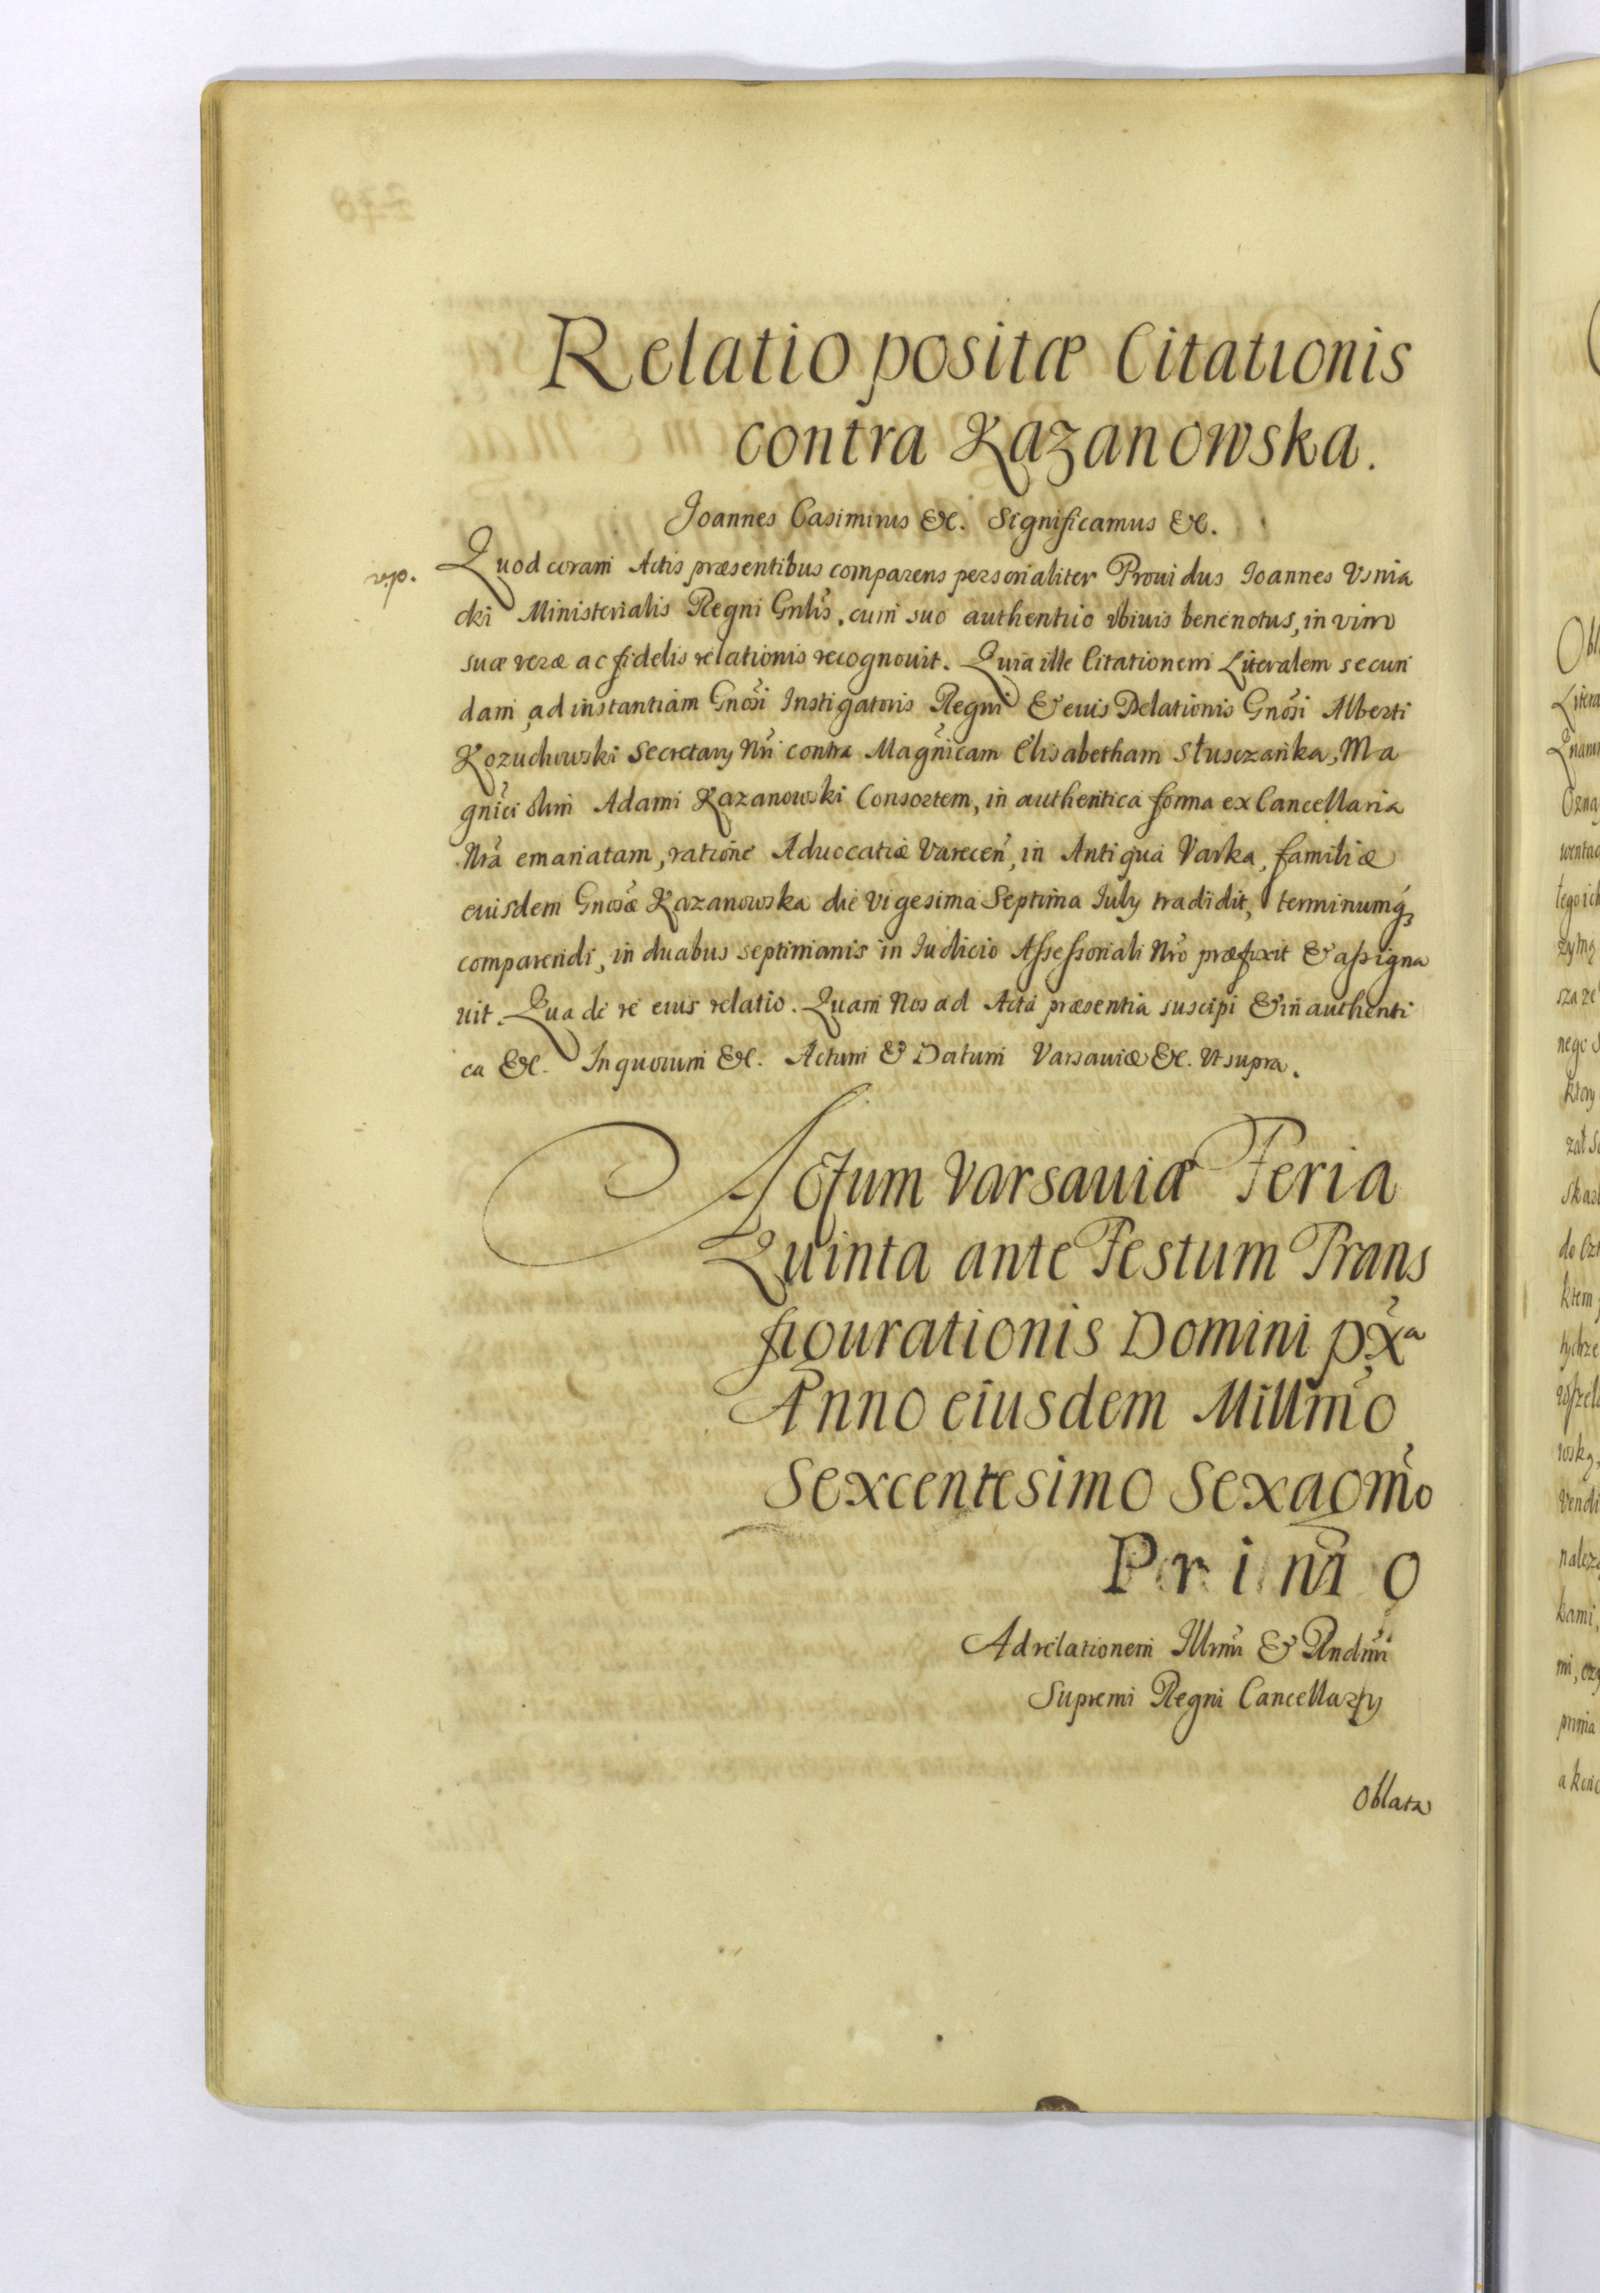 Relatio positæ Citationis
contra Kazanowska.
Joannes Casimirus &c. Significamus &c.
Quod coram Actis præsentibus comparens personaliter Prouidus Joannes Vsnia
cki Ministerialis Regni Gnlis. cum suo authentico vbiuis bene notus, in vim
suæ veræ ac fidelis relationis recognouit. Quia ille Citationem Literalem secun
dam, ad instantiam Gnosi Instigatoris Regni & eius Delationis Gnosi Alberti
Kozuchowski Secretary Nri contra Magnicam Elisabetham Słusczanka, Ma
gnici olim Adami Kazanowski Consortem, in authentica forma ex Cancellaria
Nra emanatam, ratione Aduocatiæ Varecen, in Antiqua Varka, familiæ
eiusdem Gnosæ Kazanowska die Vigesima Septima July tradidit, terminumq;
comparendi, in duabus septimanis in Iudicio Assessoriali Nro præfixit & assigna
uit. Qua de re eius relatio. Quam Nos ad Acta præsentia suscipi & in authenti
ca &c. In quorum &c. Actum & Datum Varsauiæ &c. Vt supra.
Actum Varsauiæ Feria
Quinta ante Festum Trans
figurationis Domini pxa
Anno eiusdem Millmo
Sexcentesimo Sexagmo
Primo
Ad relationem Illrmi & Rndmi
Supremi Regni Cancellarÿ
Oblata